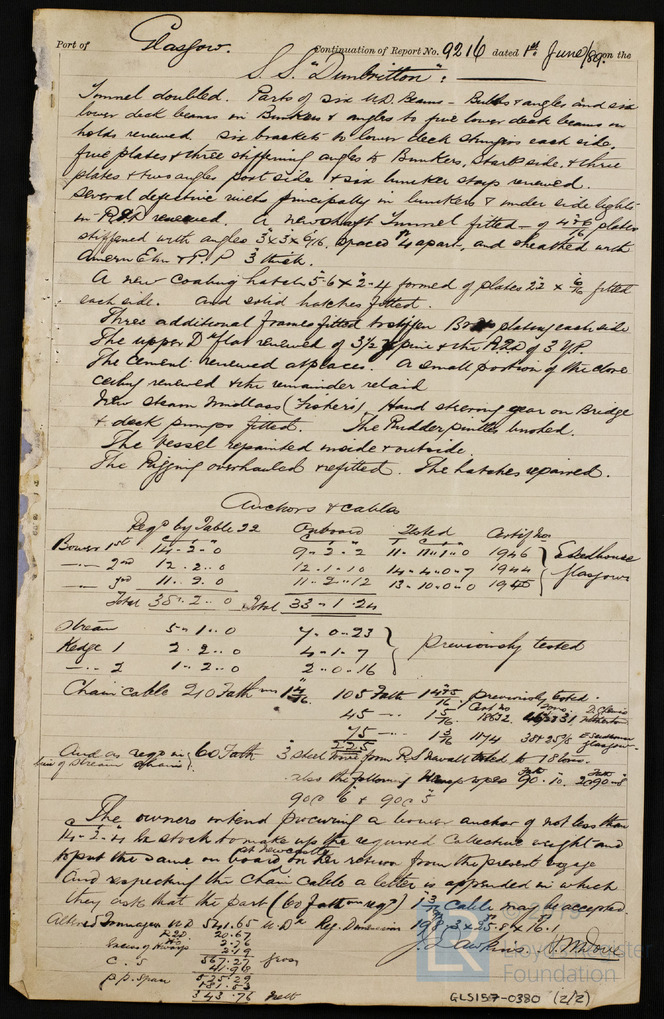 Port of Glasgow. Continuation of Report No. 9216 dated 1st June/89. on the
S.S. "Dunbritton":
Tunnel doubled. Parts of six U.D. Beams - Bulbs & angles and six
lower deck beams in Bunkers & angles to five lower deck beams in
holds renewed. six brackets to lower deck stringers each side,
five plates & three stiffening angles to Bunkers, starb side, & three
plates & two angles port side & six bunker stays renewed.
several defective rivets principally in bunkers & under side lights
in renewed. A new shaft Tunnel fitted - of plates
stiffened with angles 3 x 3 x 6/16, spaced apart, and sheathed with
Americn Elm & P.P 3 thick.
A new Coaling hatch 5-6 x 2-4 formed of plates 22 x 6/16 fitted
each side. And solid hatches fitted.
Three additional frames fitted to stiffen Bow plating each side
The upper Dk flat renewed of 3 1/2 pine & the of 3 Y.P.
The Cement renewed at places. A small portion of the close
ceiling renewed & the remainder relaid
New steam Windlass (Fishers), Hand steering gear on Bridge
& deck pumps fitted. The Rudder pintles bushed.
The Vessel repainted inside & outside.
The Rigging overhauled & refitted. The hatches repaired.
Anchors & cables
Reqd by Table 22 Onboard Tested Certif No
Bower 1st 14.2.0 9.2.2 11.11.1.0 1946
2nd 12.2.0 12.1.10 14.4.0.7 1944
3rd 11.2.0 11.2.12 13.10.0.0 1945
Glasgow
Total 38.2.0 Total 33.1.24
Stream 5.1.0 7.0.23
Kedge 1 2.2.0 4.1.7 previously tested
2 1.2.0 2.0.16
Chain cable 210 Fath 105 Fath previously tested.
Cert No Tons
45 1 5/16 18632
75 1 3/16 1174
Glasgow
225
And as reqd in 60 Fath 3 steel wire from R.S. Newall tested to 18 tons.
lieu of stream chain
also the following Warps ropes 90.10. 90.8
90 6 & 90 5
The owners intend procuring a bower anchor of not less than
14.2.4 to make up the required Collective weight and
at Newcastle
to put the same on board on her return from the present voyage
And respecting the Chain Cable a letter is appended in which
they ask that the part (60 Fath reqd) 1 3/16 Cable may be accepted
Altered Tonnages U.D 541.65 Reg. Dimensions 198.3 x 25.8 x 16.1
20.67
567.27 Gross
C.S 41.98
525.29
p.p. Space 181.53
343.76 nett
© 2019
LR
Lloyd's Register
Foundation
GLS157-0380 (2/2)